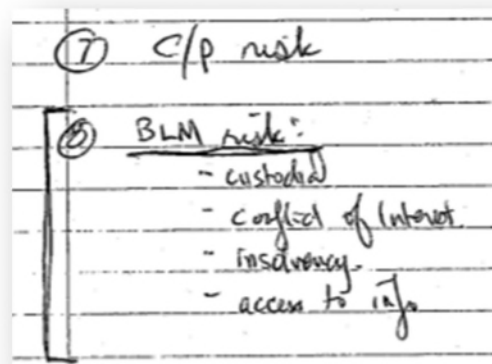 ⑦ C/P risk
⑧ BLM risk:
- custodial
- conflict of Interest.
- insolvency.
- access to info